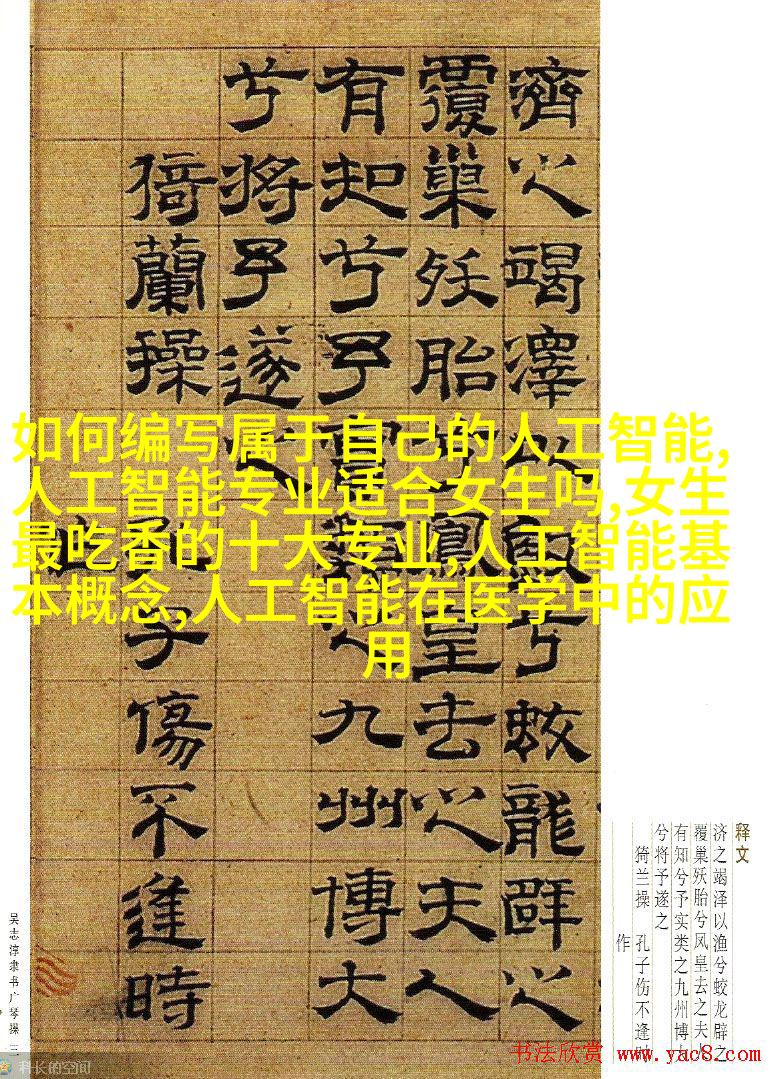 濟之竭澤以漁兮蛟龍辟之
覆巢殀胎兮鳳皇去之夫人
有知兮予實類之九州博大
兮將予遂之
猗蘭操 孔子傷不逢時
如何编写属于自己的人工智能,
人工智能专业适合女生吗,女生
最吃香的十大专业,人工智能基
本概念,人工智能在医学中的应
用
释文
济之竭泽以渔兮蛟龙辟之
覆巢殀胎兮凤皇去之夫
有知兮予实类之九州博
兮将予遂之
猗兰操 孔子伤不逢时
作
吴志淳隶书广琴操 三
科长的空间
书法欣赏 www.yac8.com